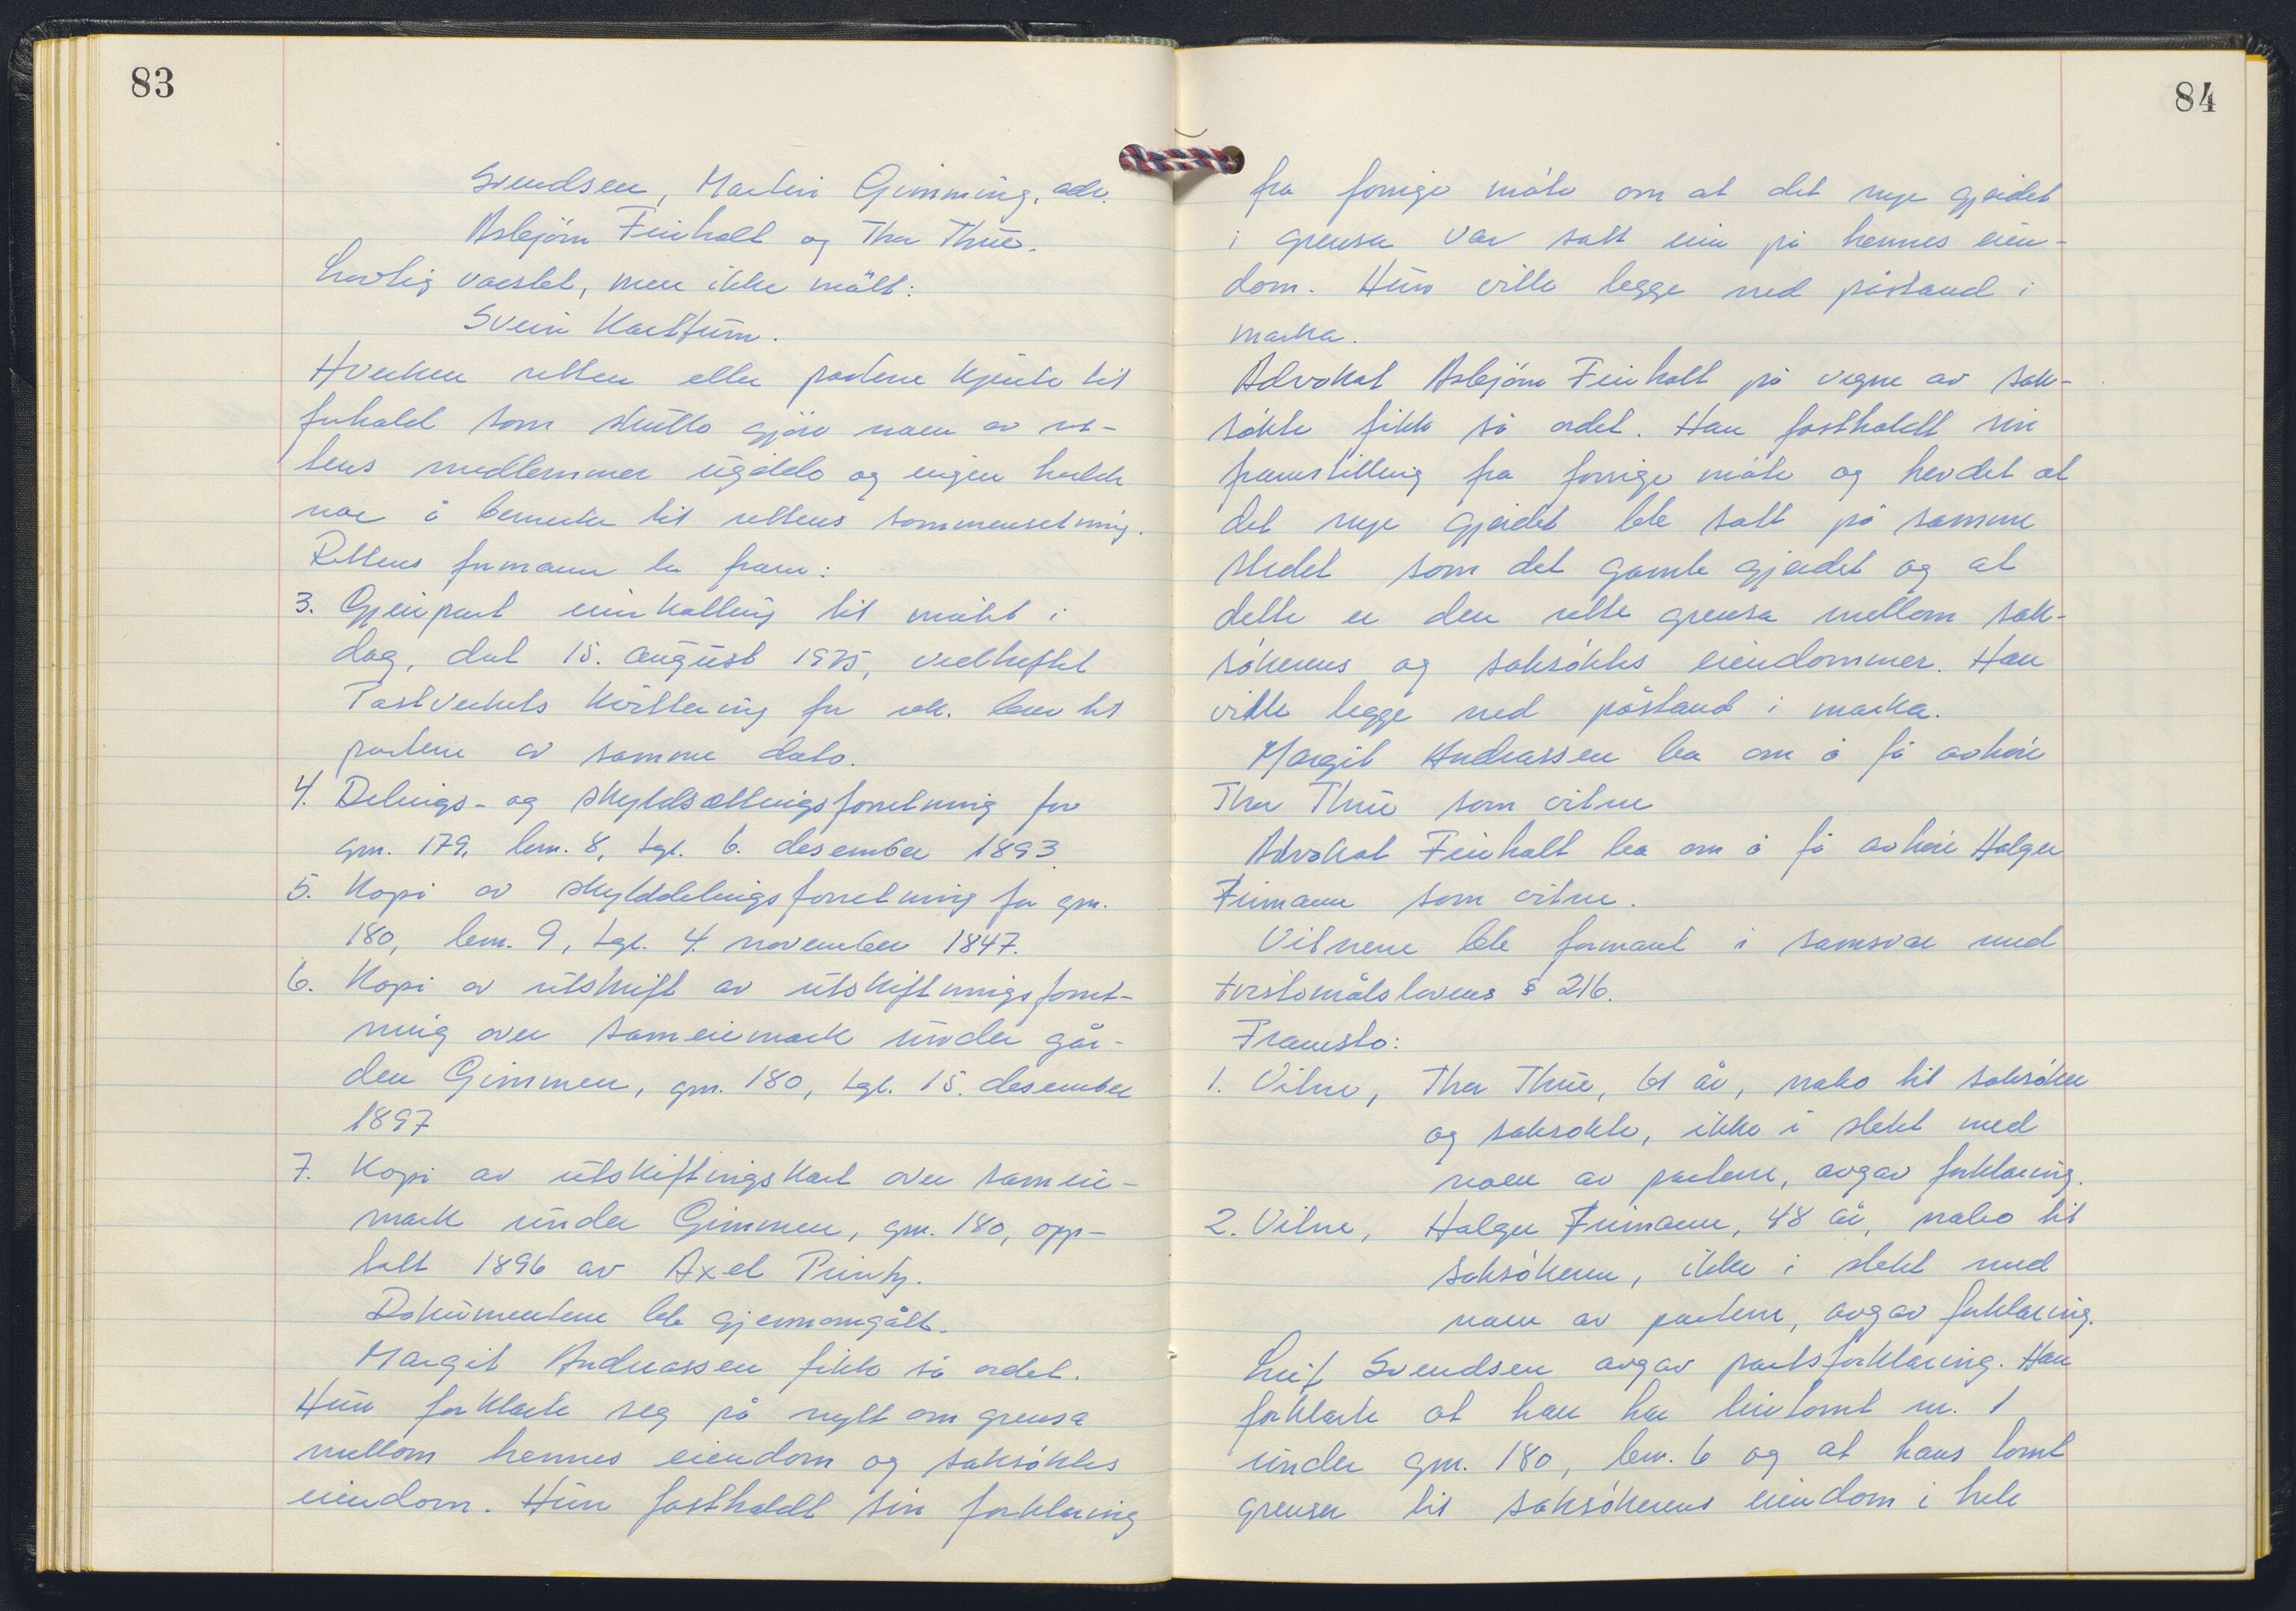 83
Svendsen, Martin Gimming, adv.
Asbjørn Feinholt og Thor Thue.
Lovlig varslet, men ikke møtt:
Svein Karlstrøm.
Hverken retten eller partene kjente til
forhold som skulle gjøre noen av ret-
tens medlemmer ugilde og ingen hadde
noe å bemerke til rettens sammensetning.
Rettens formann la fram:
3. Gjenpart innkalling til møtet i
dag, dat 15. august 1975, vedheftet
Postverkets kvittering for rek. brev til
partene av samme dato.
4. Delings- og skyldsetningsforretning for
gnr. 179, bnr. 8, tgl. 6. desember 1893
5. Kopi av skylddelingsforretning for gnr.
180, bnr. 9, tgl. 4. november 1847.
6. Kopi av utskrift av utskiftningsforret-
ning over sameiemark under går-
den Gimmen, gnr. 180, tgl. 15. desember
1897
7. Kopi av utskiftingskart over sameie-
mark under Gimmen, gnr. 180, opp-
tatt 1896 av Axel Printz.
Dokumentene ble gjennomgått.
Margit Andreassen fikk så ordet.
Hun forklarte seg på nytt om grensa
mellom hennes eiendom og saksøktes
eiendom. Hun fastholdt sin forklaring
84
fra forrige møte om at det nye gjerdet
i grensa var satt inn på hennes eien-
dom. Hun ville legge ned påstand i
marka.
Advokat Asbjørn Feinholt på vegne av sak-
søkte fikk så ordet. Han fastholdt sin
framstilling fra forrige møte og hevdet at
det nye gjerdet ble satt på samme
stedet som det gamle gjerdet og at
dette er den rette grensa mellom sak-
søkerens og saksøktes eiendommer. Han
ville legge ned påstand i marka.
Margit Andreassen ba om å få avhøre
Thor Thue som vitne
Advokat Feinholt ba om å få avhøre Holger
Furmann som vitne.
Vitnene ble formant i samsvar med
tvistemålslovens § 216.
Framsto:
1. Vitne, Thor Thue, 61 år, nabo til saksøker
og saksøkte, ikke i slekt med
noen av partene, avgav forklaring.
2. Vitne, Holger Furmann, 48 år, nabo til
saksøkeren, ikke i slekt med
noen av partene, avgav forklaring.
Leif Svendsen avgav partsforklaring. Han
forklarte at han har leietomt nr. 1
under gnr. 180, bnr. 6 og at hans tomt
grenser til saksøkerens eiendom i hele